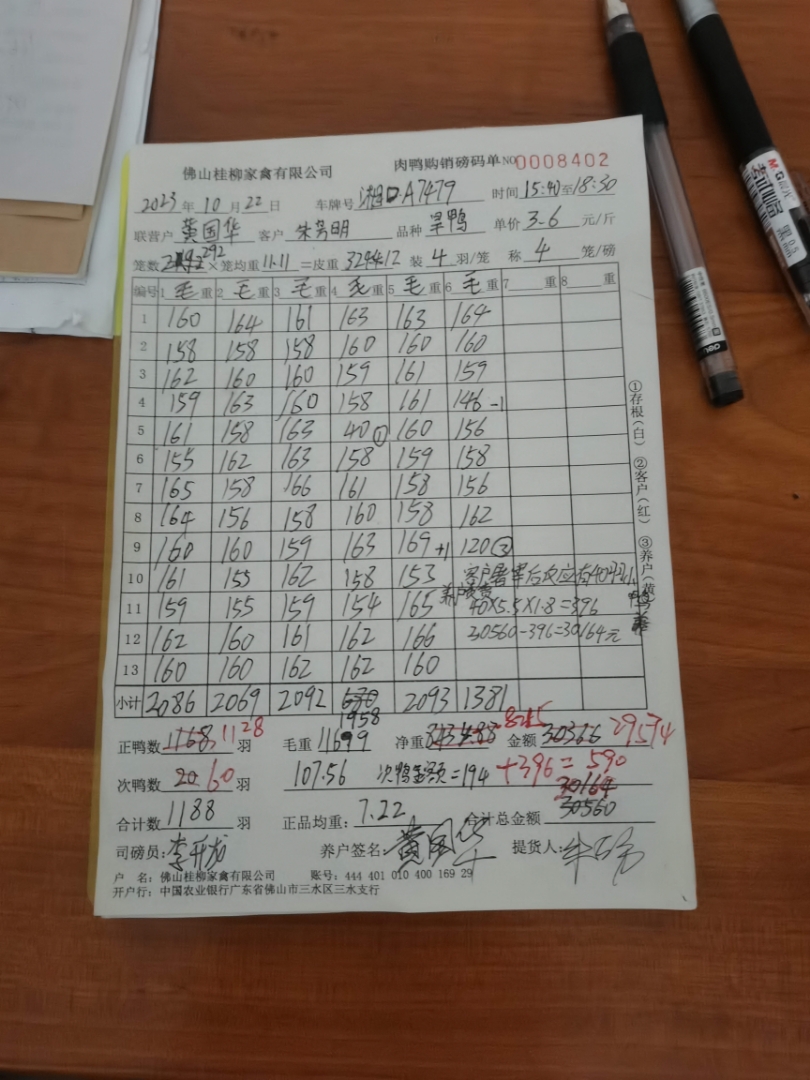 佛山桂柳家禽有限公司 肉鸭购销磅码单 NO 0008402
2023年10月22日 车牌号 湘D·A7479 时间 15:40至18:30
联营户 黄国华 客户 朱 明 品种 旱鸭 单价 3.6 元/斤
笼数 292 ×笼均重 11.11 =皮重 3244.12 装 4 羽/笼 称 4 笼/磅
编号 1 毛重 2 毛重 3 毛重 4 毛重 5 毛重 6 毛重 7 重 8 重
1 160 164 161 163 163 164
2 158 158 158 160 160 160
3 162 160 160 159 161 159
4 159 163 160 158 161 146 -1
5 161 158 163 40① 160 156
6 155 162 163 158 159 158
7 165 158 166 161 158 156
8 164 156 158 160 158 162
9 160 160 159 163 169 +1 120③
10 161 155 162 158 153 客户 后反应有40
11 159 155 159 154 165 40×5.5×1.8=396
12 162 160 161 162 166 30560-396=30164元
13 160 160 162 162 160
小计 2086 2069 2092 1958 2093 1381
①存根(白) ②客户(红) ③养户(黄)
正鸭数 1168 1128 羽 毛重 11699 净重 8434.88 8215 金额 30366 29574
次鸭数 20 60 羽 107.56 次鸭金额=194 +396=590
30164
合计数 1188 羽 正品均重: 7.22 合计总金额 30560
司磅员: 李开龙 养户签名: 黄国华 提货人:
户 名: 佛山桂柳家禽有限公司 账号: 444 401 010 400 169 29
开户行: 中国农业银行广东省佛山市三水区三水支行
M&G
deli